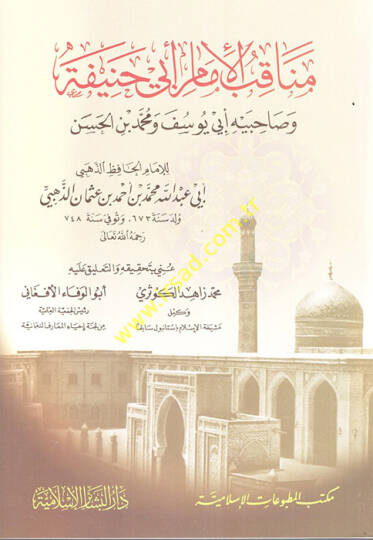 مناقب الإمام أبي حنيفة
وصاحبيه أبي يوسف ومحمد بن الحسن
للإمام الحافظ الذهبي
أبي عبد الله محمد بن أحمد بن عثمان الذهبي
ولد سنة ٦٧٣، وتوفي سنة ٧٤٨
رحمه الله تعالى
عني بتحقيقه والتعليق عليه
محمد زاهد الكوثري
وكيل
مشيخة الإسلام بإستانبول سابقا
أبو الوفاء الأفغاني
رئيس الجمعية العلمية
من لجنة إحياء المعارف النعمانية
www.esad.com.tr
مكتب المطبوعات الإسلامية
دار البشائر الإسلامية